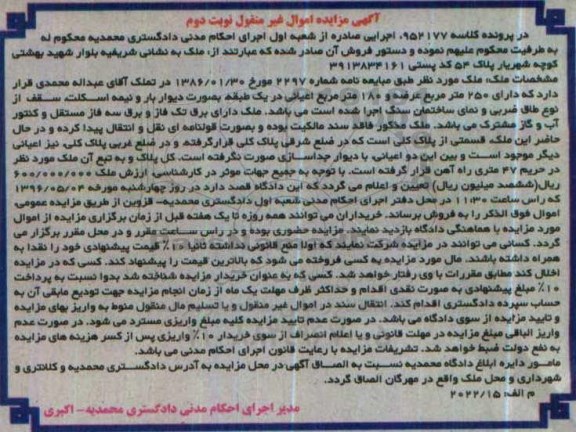 آگهی مزایده اموال غیر منقول نوبت دوم
در پرونده کلاسه ۹۵۲۱۷۷، اجرایی صادره از شعبه اول اجرای احکام مدنی دادگستری محمدیه محکوم له
به طرفیت محکوم علیهم نموده و دستور فروش آن صادر شده که عبارتند از، ملک به نشانی شریفیه بلوار شهید بهشتی
کوچه شهریار پلاک ۵۴ کد پستی ۳۹۱۳۸۳۴۱۶۱
مشخصات ملک: ملک مورد نظر طبق مبایعه نامه شماره ۲۲۹۷ مورخ ۱۳۸۶/۰۱/۳۰ در تملک آقای عبداله محمدی قرار
دارد که دارای ۲۵۰ متر مربع عرصه و ۱۸۰ متر مربع اعیانی در یک طبقه، بصورت دیوار بار و نیمه اسکلت، سقف از
نوع طاق ضربی و نمای ساختمان سنگ اجرا شده است می باشد. ملک دارای برق تک فاز و برق سه فاز مستقل و کنتور
آب و گاز مشترک می باشد. ملک مذکور فاقد سند مالکیت بوده و بصورت قولنامه ای نقل و انتقال پیدا کرده و در حال
حاضر این ملک، قسمتی از پلاک کلی است که در ضلع شرقی پلاک کلی قرارگرفته، و در ضلع غربی پلاک کلی، نیز اعیانی
دیگر موجود است و بین این دو اعیانی، با دیوار جداسازی صورت نگرفته است. کل پلاک و به تبع آن ملک مورد نظر
در حریم ۴۷ متری راه آهن قرار گرفته است. با توجه به جمیع جهات موثر در کارشناسی، ارزش ملک ۶۰۰/۰۰۰/۰۰۰
ریال(ششصد میلیون ریال) تعیین و اعلام می گردد که این دادگاه قصد دارد در روز چهارشنبه مورخه ۱۳۹۶/۰۵/۰۴
که راس ساعت ۱۱:۳۰ در محل دفتر اجرای احکام مدنی شعبه اول دادگستری محمدیه- قزوین از طریق مزایده عمومی،
اموال فوق الذکر را به فروش برساند. خریداران می توانند همه روزه تا یک هفته قبل از زمان برگزاری مزایده از اموال
مورد مزایده با هماهنگی دادگاه بازدید نمایند. مزایده حضوری بوده و در راس ساعت مقرر و در محل مقرر برگزار می
گردد. کسانی می توانند در مزایده شرکت نمایند که اولا منع قانونی نداشته ثانیا ۱۰٪ قیمت پیشنهادی خود را نقدا به
همراه داشته باشند. مال مورد مزایده به کسی فروخته می شود که بالاترین قیمت را پیشنهاد کند. کسی که در مزایده
اخلال کند مطابق مقررات با وی رفتار خواهد شد. کسی که به عنوان خریدار مزایده شناخته شد بدوا نسبت به پرداخت
۱۰٪ مبلغ پیشنهادی به صورت نقدی اقدام و حداکثر ظرف مهلت یک ماه از زمان انجام مزایده جهت تودیع مابقی آن به
حساب سپرده دادگستری اقدام کند. انتقال سند در اموال غیر منقول و یا تسلیم مال منقول منوط به واریز بهای مزایده
و تایید مزایده از سوی دادگاه می باشد. در صورت عدم تایید مزایده کلیه مبلغ واریزی مسترد می شود. در صورت عدم
واریز الباقی مبلغ مزایده در مهلت قانونی و یا اعلام انصراف از سوی خریدار ۱۰٪ واریزی پس از کسر هزینه های مزایده
به نفع دولت ضبط خواهد شد. تشریفات مزایده با رعایت قانون اجرای احکام مدنی می باشد.
مامور دایره ابلاغ دادگاه محمدیه نسبت به الصاق آگهی در محل مزایده به آدرس دادگستری محمدیه و کلانتری و
شهرداری و محل ملک واقع در مهرگان الصاق گردد.
م الف: ۲۰۲۲/۱۵
مدیر اجرای احکام مدنی دادگستری محمدیه- اکبری